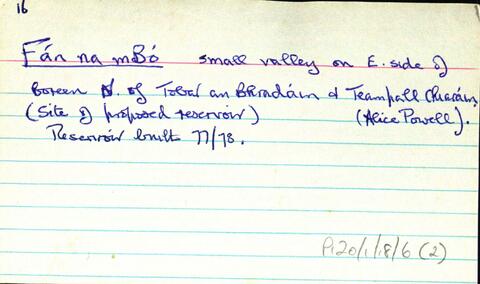 16
Fán na mBó small valley on E. side of
boreen N. of Tobar an Bhradáin & Teampall Chiaráin,
(Site of proposed reservoir) (Alice Powell).
Reservoir built 77/78.
P120/1/18/6 (2)